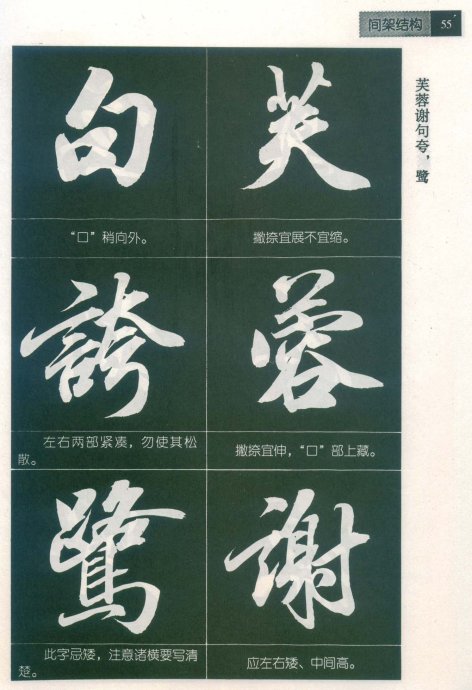 间架结构 55
芙蓉谢句夸，鹭
芙
撇捺宜展不宜缩。
蓉
撇捺宜伸，“口”部上藏。
謝
应左右矮、中间高。
句
“口”稍向外。
誇
左右两部紧凑，勿使其松
散。
鷺
此字忌矮，注意诸横要写清
楚。